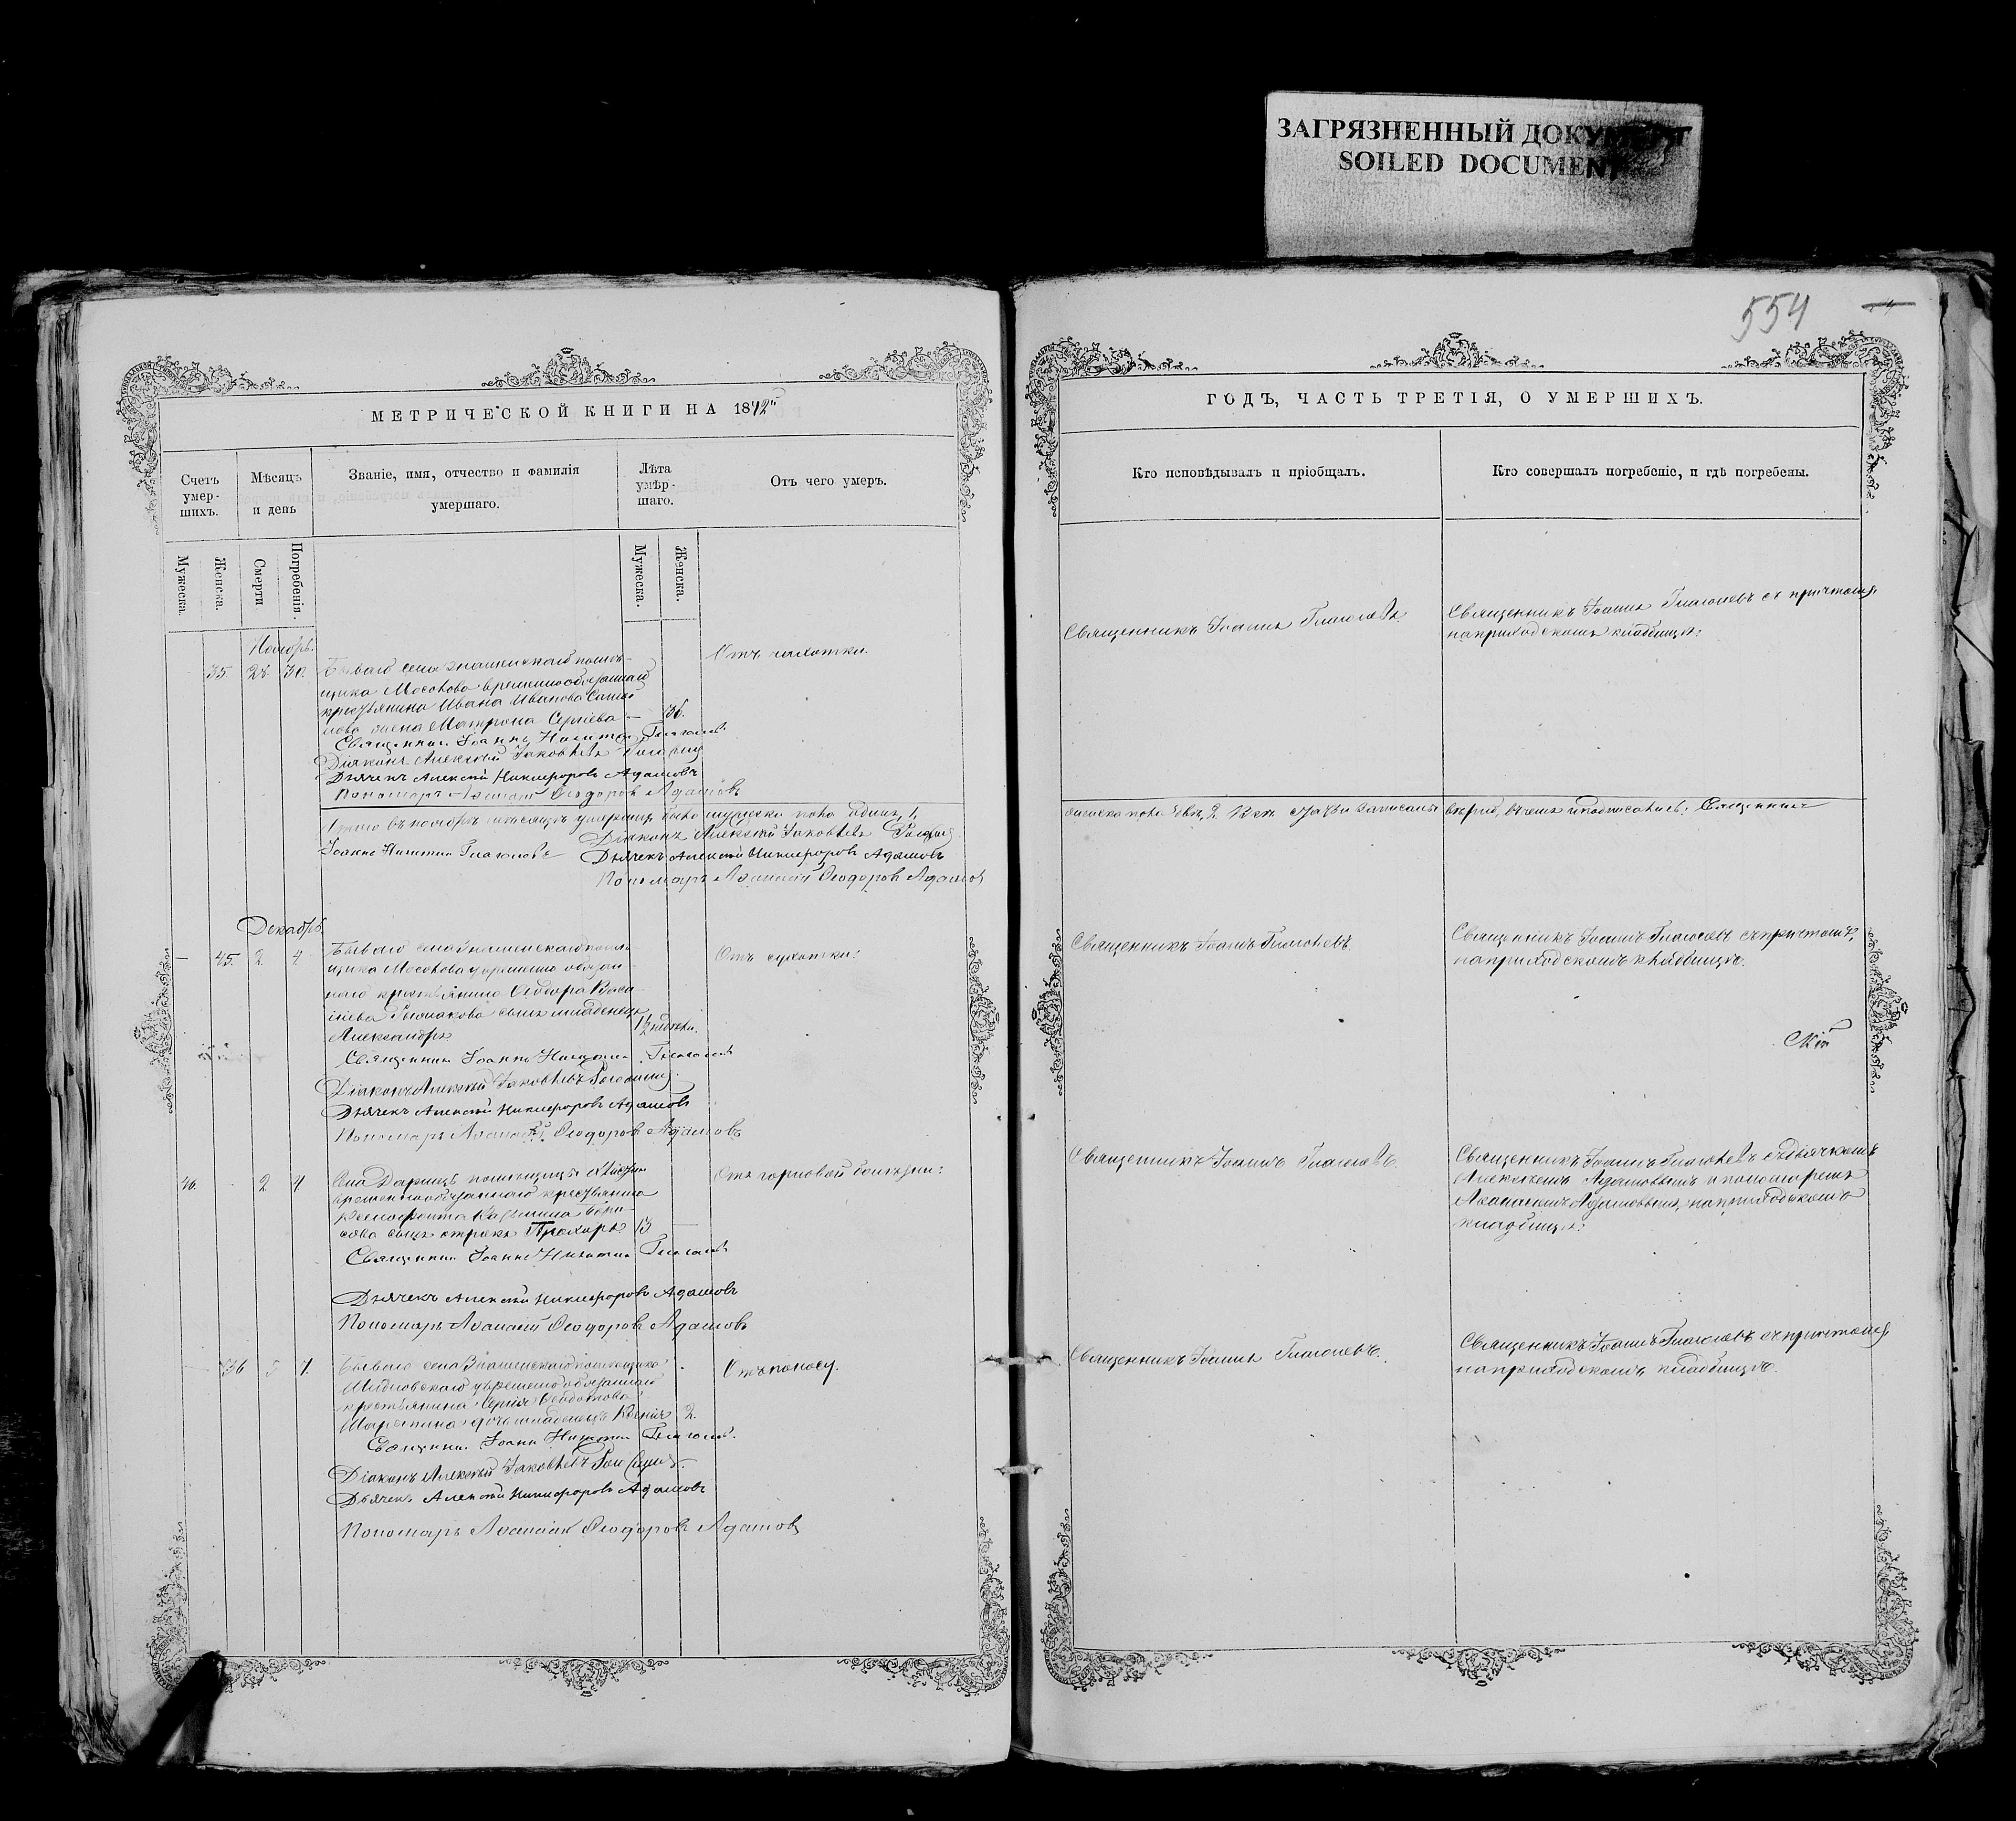 ЗАГРЯЗНЕННЫЙ ДОКУМЕНТ
SOILED DOCUMENT
554
МЕТРИЧЕСКОЙ КНИГИ НА 1872
Счетъ умер-шихъ.
Мѣсяцъ и день
Званіе, имя, отчество и фамилія умершаго.
Лѣта умѣр-шаго.
Отъ чего умеръ.
Мужеска.
Женска.
Смерти
Погребенія.
Мужеска.
Женска.
Ноябрь.
35. 28. 30.
Бывшаго села Знаменскаго помѣ-
щика Мосолова временнообязаннаго
крестьянина Ивана Иванова
жена Матрона Сергіева — 36.
Отъ чахотки.
Священникъ Іоаннъ Никитин Глаголевъ
Діаконъ Алексѣй Іаковлевъ
Дьячекъ Алексѣй Никифоровъ Адамовъ
Пономарь Аѳанасій Ѳеодоровъ Адамовъ
Итого въ ноябрѣ мѣсяцѣ умершихъ было мужеска пола одинъ, 1,
Діаконъ Алексѣй Іаковлевъ
Іоаннъ Никитин Глаголевъ
Дьячекъ Алексѣй Никифоровъ Адамовъ
Пономарь Аѳанасій Ѳеодоровъ Адамовъ
Декабрь.
— 45. 2. 4.
Бывшаго села Знаменскаго помѣ-
щика Мосолова временно обязан-
наго крестьянина Ѳедора Васи-
льева сынъ младенецъ
Александръ
1½ недѣли.
Отъ сухотки.
Священникъ Іоаннъ Никитин Глаголевъ
Діаконъ Алексѣй Іаковлевъ
Дьячекъ Алексѣй Никифоровъ Адамовъ
Пономарь Аѳанасій Ѳеодоровъ Адамовъ
46. 2 4
Села Дарищъ помѣщицы
временнообязаннаго крестьянина
Ксенофонта Казьмина Бори-
сова сынъ отрокъ Прохоръ 13 —
Отъ горловой болѣзни.
Священникъ Іоаннъ Никитин Глаголевъ
Дьячекъ Алексѣй Никифоровъ Адамовъ
Пономарь Аѳанасій Ѳеодоровъ Адамовъ
— 36 5 7.
Бывшаго села Знаменскаго помѣщика
временнообязаннаго
крестьянина Сергія Ѳеодотова
дочь младенецъ Ксенія 2.
Отъ поносу.
Священникъ Іоаннъ Никитин Глаголевъ.
Діаконъ Алексѣй Іаковлевъ
Дьячекъ Алексѣй Никифоровъ Адамовъ
Пономарь Аѳанасій Ѳеодоровъ Адамовъ
ГОДЪ, ЧАСТЬ ТРЕТІЯ, О УМЕРШИХЪ.
Кто исповѣдывалъ и пріобщалъ.
Кто совершалъ погребеніе, и гдѣ погребены.
Священникъ Іоаннъ Глаголевъ
Священникъ Іоаннъ Глаголевъ съ причтомъ,
на приходскомъ кладбищѣ.
женска пола двѣ, 2. Всѣ записаны вѣрно, въ чемъ и подписались: Священникъ
Священникъ Іоаннъ Глаголевъ.
Священникъ Іоаннъ Глаголевъ съ причтомъ,
на приходскомъ кладбищѣ.
Священникъ Іоаннъ Глаголевъ.
Священникъ Іоаннъ Глаголевъ съ дьячкомъ
Алексѣемъ Адамовымъ и пономаремъ
Аѳанасіемъ Адамовымъ, на приходскомъ
кладбищѣ.
Священникъ Іоаннъ Глаголевъ.
Священникъ Іоаннъ Глаголевъ съ причтомъ
на приходскомъ кладбищѣ.